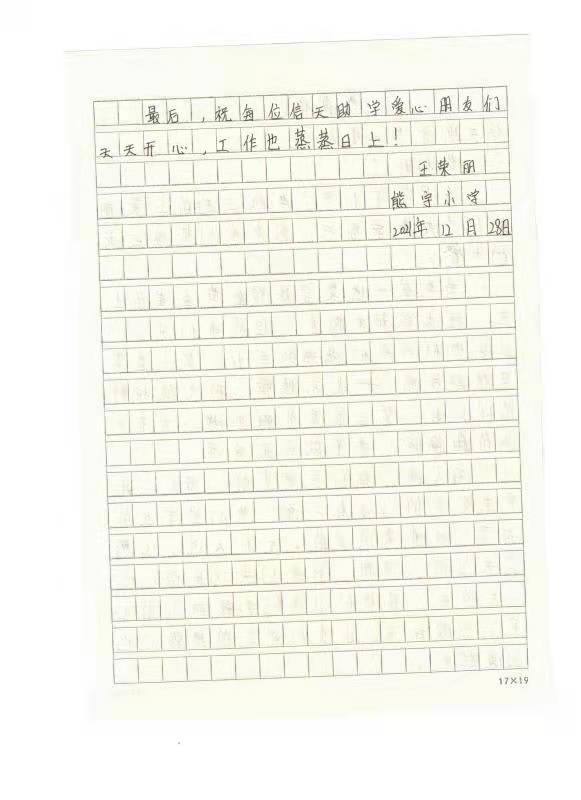 最后,祝每位信天助学爱心朋友们
天天开心,工作也蒸蒸日上!
王荣丽
熊字小学
2021年12月28日
17×19